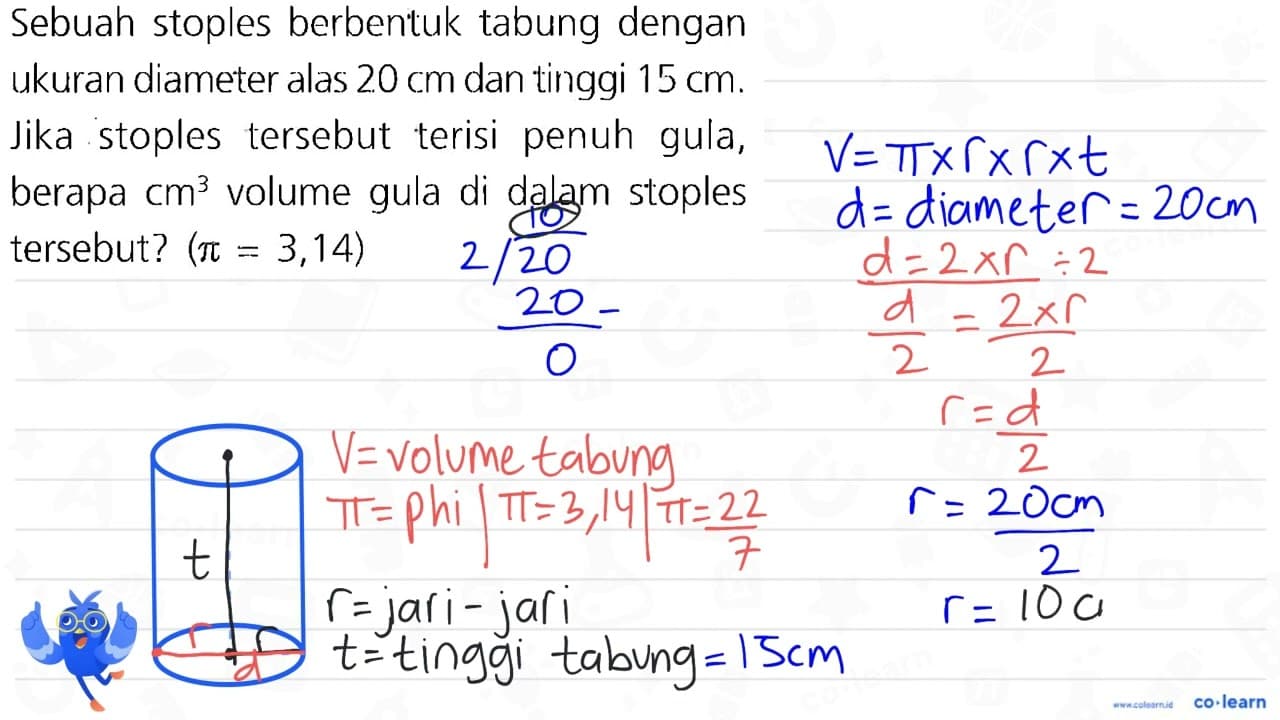 Sebuah stoples berbentuk tabung dengan
ukuran diameter alas 20 cm dan tinggi 15 cm.
Jika stoples tersebut terisi penuh gula,
berapa cm³ volume gula di dalam stoples
tersebut? (π = 3,14)
10
2/20
20 -
0
V = π x r x r x t
d = diameter = 20cm
d = 2 x r ÷ 2
d/2 = 2xr/2
r = d/2
r = 20cm/2
r = 10 c
V = volume tabung
π = phi | π = 3,14 | π = 22/7
r = jari - jari
t = tinggi tabung = 15cm
t
r r
d
www.colearn.id co·learn